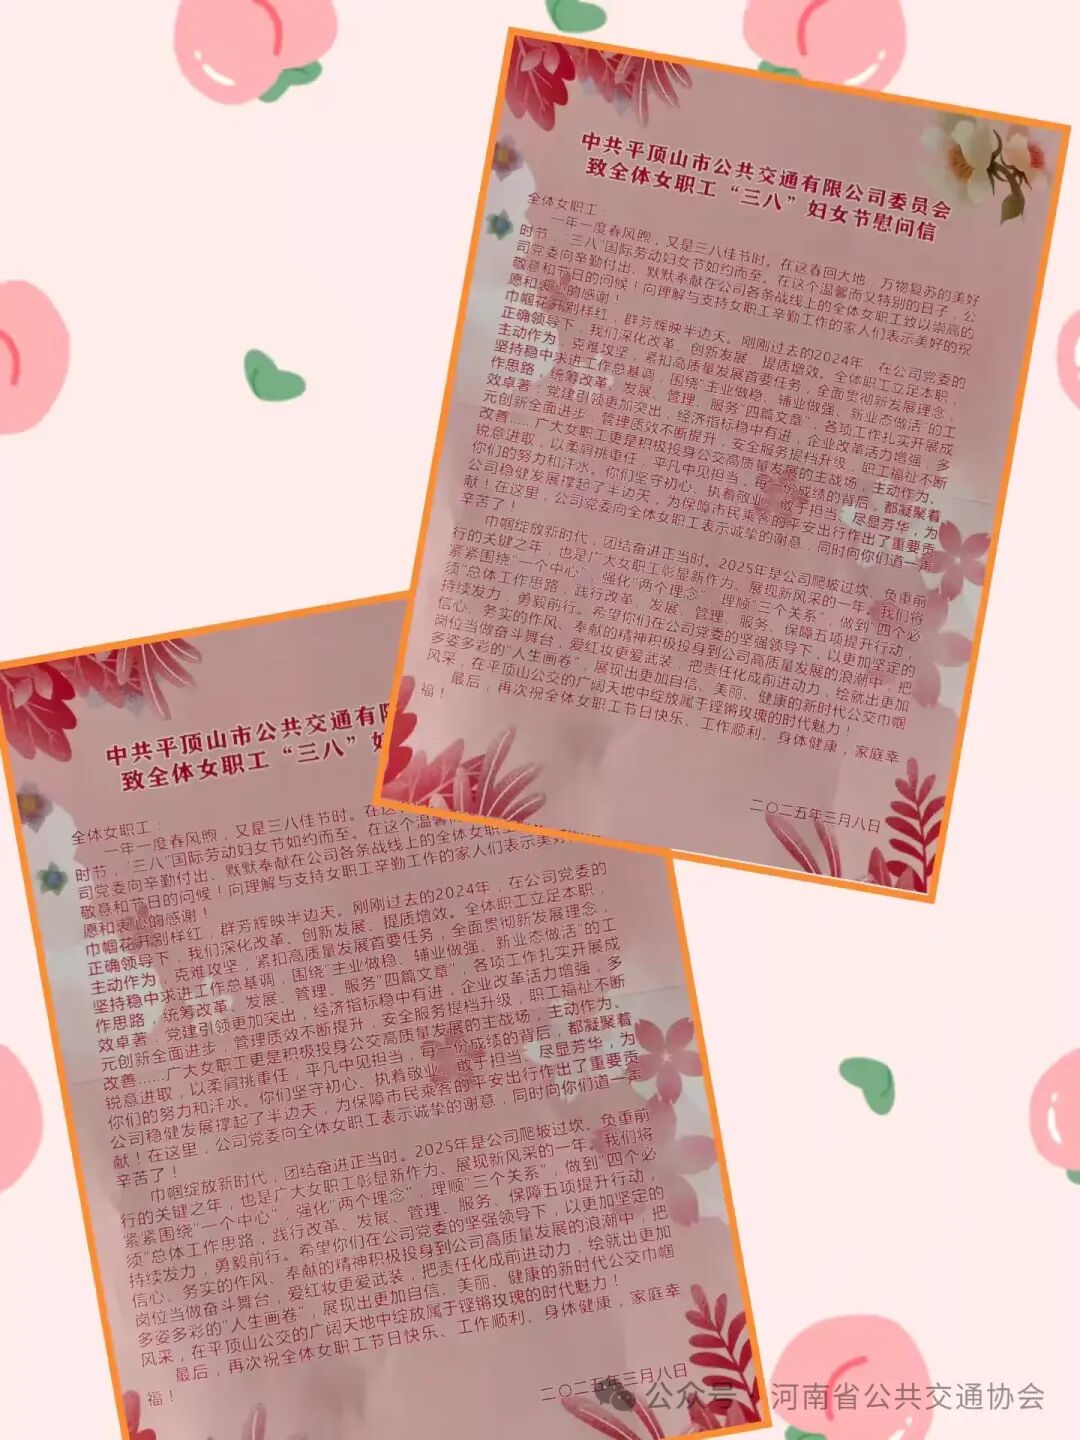 中共平顶山市公共交通有限公司委员会
致全体女职工“三八”妇女节慰问信
全体女职工：
一年一度春风煦，又是三八佳节时。在这春回大地，万物复苏的美好
时节，“三八”国际劳动妇女节如约而至。在这个温馨而又特别的日子，公
司党委向辛勤付出、默默奉献在公司各条战线上的全体女职工致以崇高的
敬意和节日的问候！向理解与支持女职工辛勤工作的家人们表示美好的祝
愿和衷心的感谢！
巾帼花开别样红，群芳辉映半边天。刚刚过去的2024年，在公司党委的
正确领导下，我们深化改革、创新发展、提质增效。全体职工立足本职，
主动作为，克难攻坚，紧扣高质量发展首要任务，全面贯彻新发展理念，
坚持稳中求进工作总基调，围绕“主业做稳、辅业做强、新业态做活”的工
作思路，统筹改革、发展、管理、服务“四篇文章”，各项工作扎实开展成
效卓著：党建引领更加突出，经济指标稳中有进，企业改革活力增强，多
元创新全面进步，管理质效不断提升，安全服务提档升级，职工福祉不断
改善……广大女职工更是积极投身公交高质量发展的主战场，主动作为、
锐意进取，以柔肩挑重任，平凡中见担当，每一份成绩的背后，都凝聚着
你们的努力和汗水。你们坚守初心、执着敬业、敢于担当、尽显芳华，为
公司稳健发展撑起了半边天，为保障市民乘客的平安出行作出了重要贡
献！在这里，公司党委向全体女职工表示诚挚的谢意，同时向你们道一声
辛苦了！
巾帼绽放新时代，团结奋进正当时。2025年是公司爬坡过坎、负重前
行的关键之年，也是广大女职工彰显新作为、展现新风采的一年。我们将
紧紧围绕“一个中心”，强化“两个理念”，理顺“三个关系”，做到“四个必
须”总体工作思路，践行改革、发展、管理、服务、保障五项提升行动，
持续发力，勇毅前行。希望你们在公司党委的坚强领导下，以更加坚定的
信心、务实的作风、奉献的精神积极投身到公司高质量发展的浪潮中，把
岗位当做奋斗舞台，爱红妆更爱武装，把责任化成前进动力，绘就出更加
多姿多彩的“人生画卷”，展现出更加自信、美丽、健康的新时代公交巾帼
风采，在平顶山公交的广阔天地中绽放属于铿锵玫瑰的时代魅力！
最后，再次祝全体女职工节日快乐、工作顺利、身体健康，家庭幸
福！
二〇二五年三月八日
中共平顶山市公共交通有限
致全体女职工“三八”妇
全体女职工：
一年一度春风煦，又是三八佳节时。在这
时节，“三八”国际劳动妇女节如约而至。在这个温馨
司党委向辛勤付出、默默奉献在公司各条战线上的全体女职工
敬意和节日的问候！向理解与支持女职工辛勤工作的家人们表示美好
愿和衷心的感谢！
巾帼花开别样红，群芳辉映半边天。刚刚过去的2024年，在公司党委的
正确领导下，我们深化改革、创新发展、提质增效。全体职工立足本职，
主动作为，克难攻坚，紧扣高质量发展首要任务，全面贯彻新发展理念，
坚持稳中求进工作总基调，围绕“主业做稳、辅业做强、新业态做活”的工
作思路，统筹改革、发展、管理、服务“四篇文章”，各项工作扎实开展成
效卓著：党建引领更加突出，经济指标稳中有进，企业改革活力增强，多
元创新全面进步，管理质效不断提升，安全服务提档升级，职工福祉不断
改善……广大女职工更是积极投身公交高质量发展的主战场，主动作为、
锐意进取，以柔肩挑重任，平凡中见担当，每一份成绩的背后，都凝聚着
你们的努力和汗水。你们坚守初心、执着敬业、敢于担当、尽显芳华，为
公司稳健发展撑起了半边天，为保障市民乘客的平安出行作出了重要贡
献！在这里，公司党委向全体女职工表示诚挚的谢意，同时向你们道一声
辛苦了！
巾帼绽放新时代，团结奋进正当时。2025年是公司爬坡过坎、负重前
行的关键之年，也是广大女职工彰显新作为、展现新风采的一年。我们将
紧紧围绕“一个中心”，强化“两个理念”，理顺“三个关系”，做到“四个必
须”总体工作思路，践行改革、发展、管理、服务、保障五项提升行动，
持续发力，勇毅前行。希望你们在公司党委的坚强领导下，以更加坚定的
信心、务实的作风、奉献的精神积极投身到公司高质量发展的浪潮中，把
岗位当做奋斗舞台，爱红妆更爱武装，把责任化成前进动力，绘就出更加
多姿多彩的“人生画卷”，展现出更加自信、美丽、健康的新时代公交巾帼
风采，在平顶山公交的广阔天地中绽放属于铿锵玫瑰的时代魅力！
最后，再次祝全体女职工节日快乐、工作顺利、身体健康，家庭幸
福！
二〇二五年三月八日
公众号·河南省公共交通协会